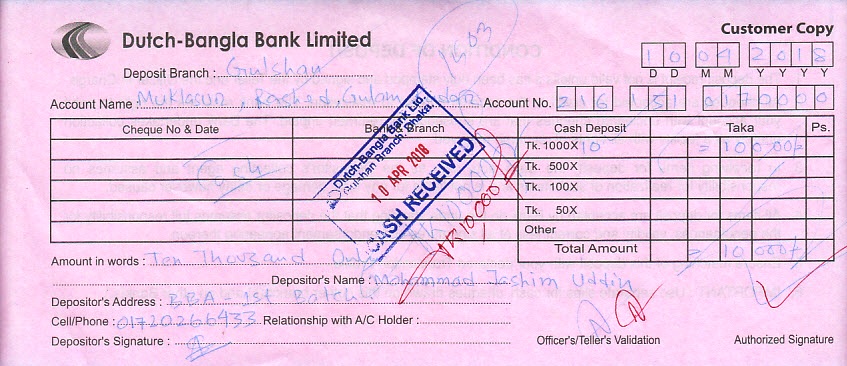 Customer Copy
Dutch-Bangla Bank Limited
10 04 2018
D D M M Y Y Y Y
Deposit Branch : Gulshan
Account Name : Muklasur, Rashed, Gulam Account No. 216 151 0170000
Cheque No & Date Bank & Branch Cash Deposit Taka Ps.
Tk. 1000X 10 = 10000/-
Cash Tk. 500X
Tk. 100X
Tk. 50X
Other
Total Amount = 10,000/-
Dutch-Bangla Bank Ltd.
Gulshan Branch, Dhaka.
10 APR 2018
CASH RECEIVED
Amount in words : Ten Thousand Only
Depositor's Name : Mohammad Jashim Uddin
Depositor's Address : BBA - 1st Batch
Cell/Phone : 01720266933 Relationship with A/C Holder :
Depositor's Signature :
Officer's/Teller's Validation Authorized Signature